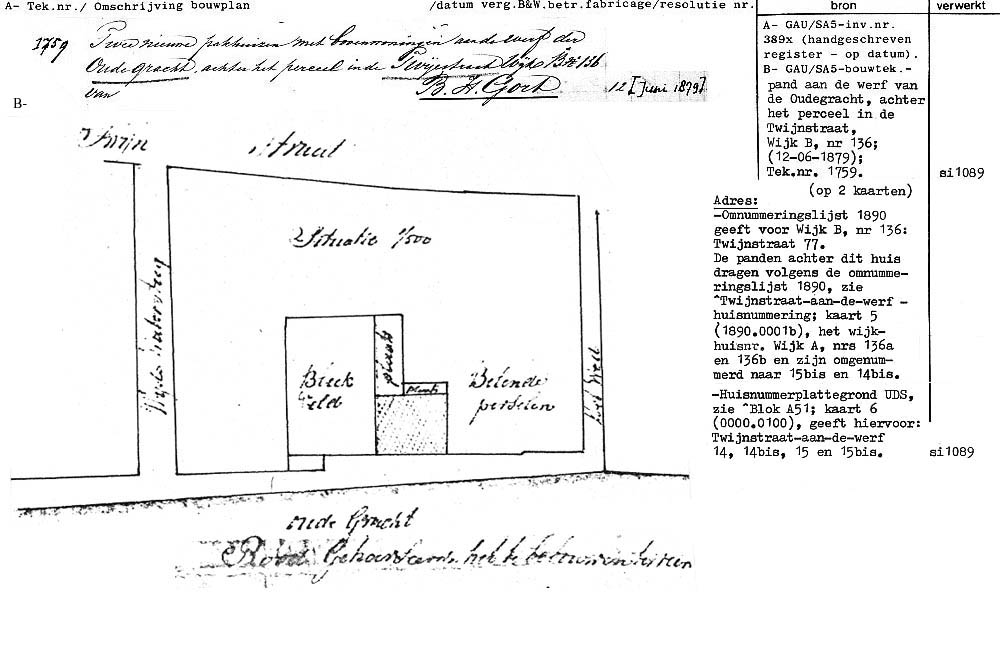 A- Tek.nr./ Omschrijving bouwplan /datum verg.B&W.betr.fabricage/resolutie nr. bron verwerkt
1759 Twee nieuwe pakhuizen met bovenwoningen aan de werf der
Oude gracht, achter het perceel in de Twijnstraat Wijk B No 136
van B. H. Gort 12 [Juni 1879]
B-
A- GAU/SA5-inv.nr.
389x (handgeschreven
register - op datum).
B- GAU/SA5-bouwtek.-
pand aan de werf van
de Oudegracht, achter
het perceel in de
Twijnstraat,
Wijk B, nr 136;
(12-06-1879);
Tek.nr. 1759. si1089
(op 2 kaarten)
Adres:
-Omnummeringslijst 1890
geeft voor Wijk B, nr 136:
Twijnstraat 77.
De panden achter dit huis
dragen volgens de omnumme-
ringslijst 1890, zie
^Twijnstraat-aan-de-werf -
huisnummering; kaart 5
(1890.0001b), het wijk-
huisnr. Wijk A, nrs 136a
en 136b en zijn omgenum-
merd naar 15bis en 14bis.
-Huisnummerplattegrond UDS,
zie ^Blok A51; kaart 6
(0000.0100), geeft hiervoor:
Twijnstraat-aan-de-werf
14, 14bis, 15 en 15bis. si1089
Twijn straat
Situatie 1/500
plaats
Bleek
veld
plaats
Belende
perselen
oude Gracht
Rood Geharseerd het te bebouwen terrein